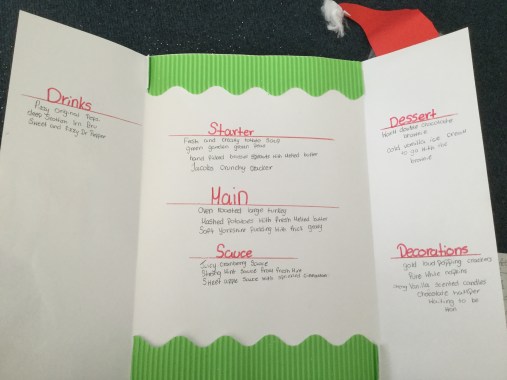 Drinks
Fizzy original Pepsi
deep Scottish Irn Bru
Sweet and Fizzy Dr Pepper
Starter
Fresh and creamy tomato Soup
Green garden green bean
hand Picked brussel Sprouts with Melted butter
Jacobs crunchy cracker
Main
Oven roasted large turkey
Mashed Potatoes with Fresh Melted butter
Soft Yorkshire Pudding with thick gravy
Sauce
Juicy cranberry Sauce
Sticky Mint Sauce from fresh Mint
Sweet apple Sauce with sprinkled
Dessert
double chocolate
brownie
Cold vanilla ice cream
to go with the
brownie
Decorations
gold loud popping crackers
Pure white napkins
Vanilla Scented candles
Chocolate
Waiting to be